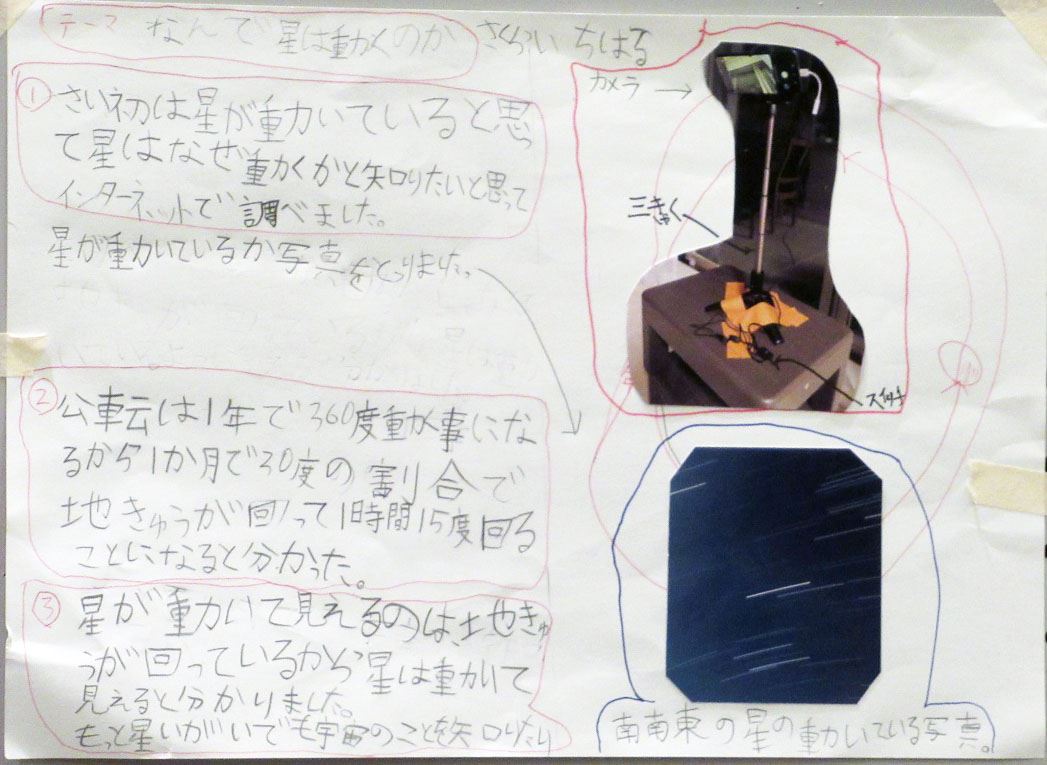 テーマ なんで星は動くのか さくらい ちはる
① さい初は星が動いていると思っ
て星はなぜ動くかと知りたいと思って
インターネットで調べました。
星が動いているか写真をとりました。
② 公転は1年で360度動く事にな
るから1か月で30度の割合で
地きゅうが回って1時間15度回る
ことになると分かった。
③ 星が動いて見えるのは、地きゅ
うが回っているから星は動いて
見えると分かりました。
もっと星いがいでも宇宙のことを知りたい
カメラ
三きゃく
南南東の星の動いている写真。